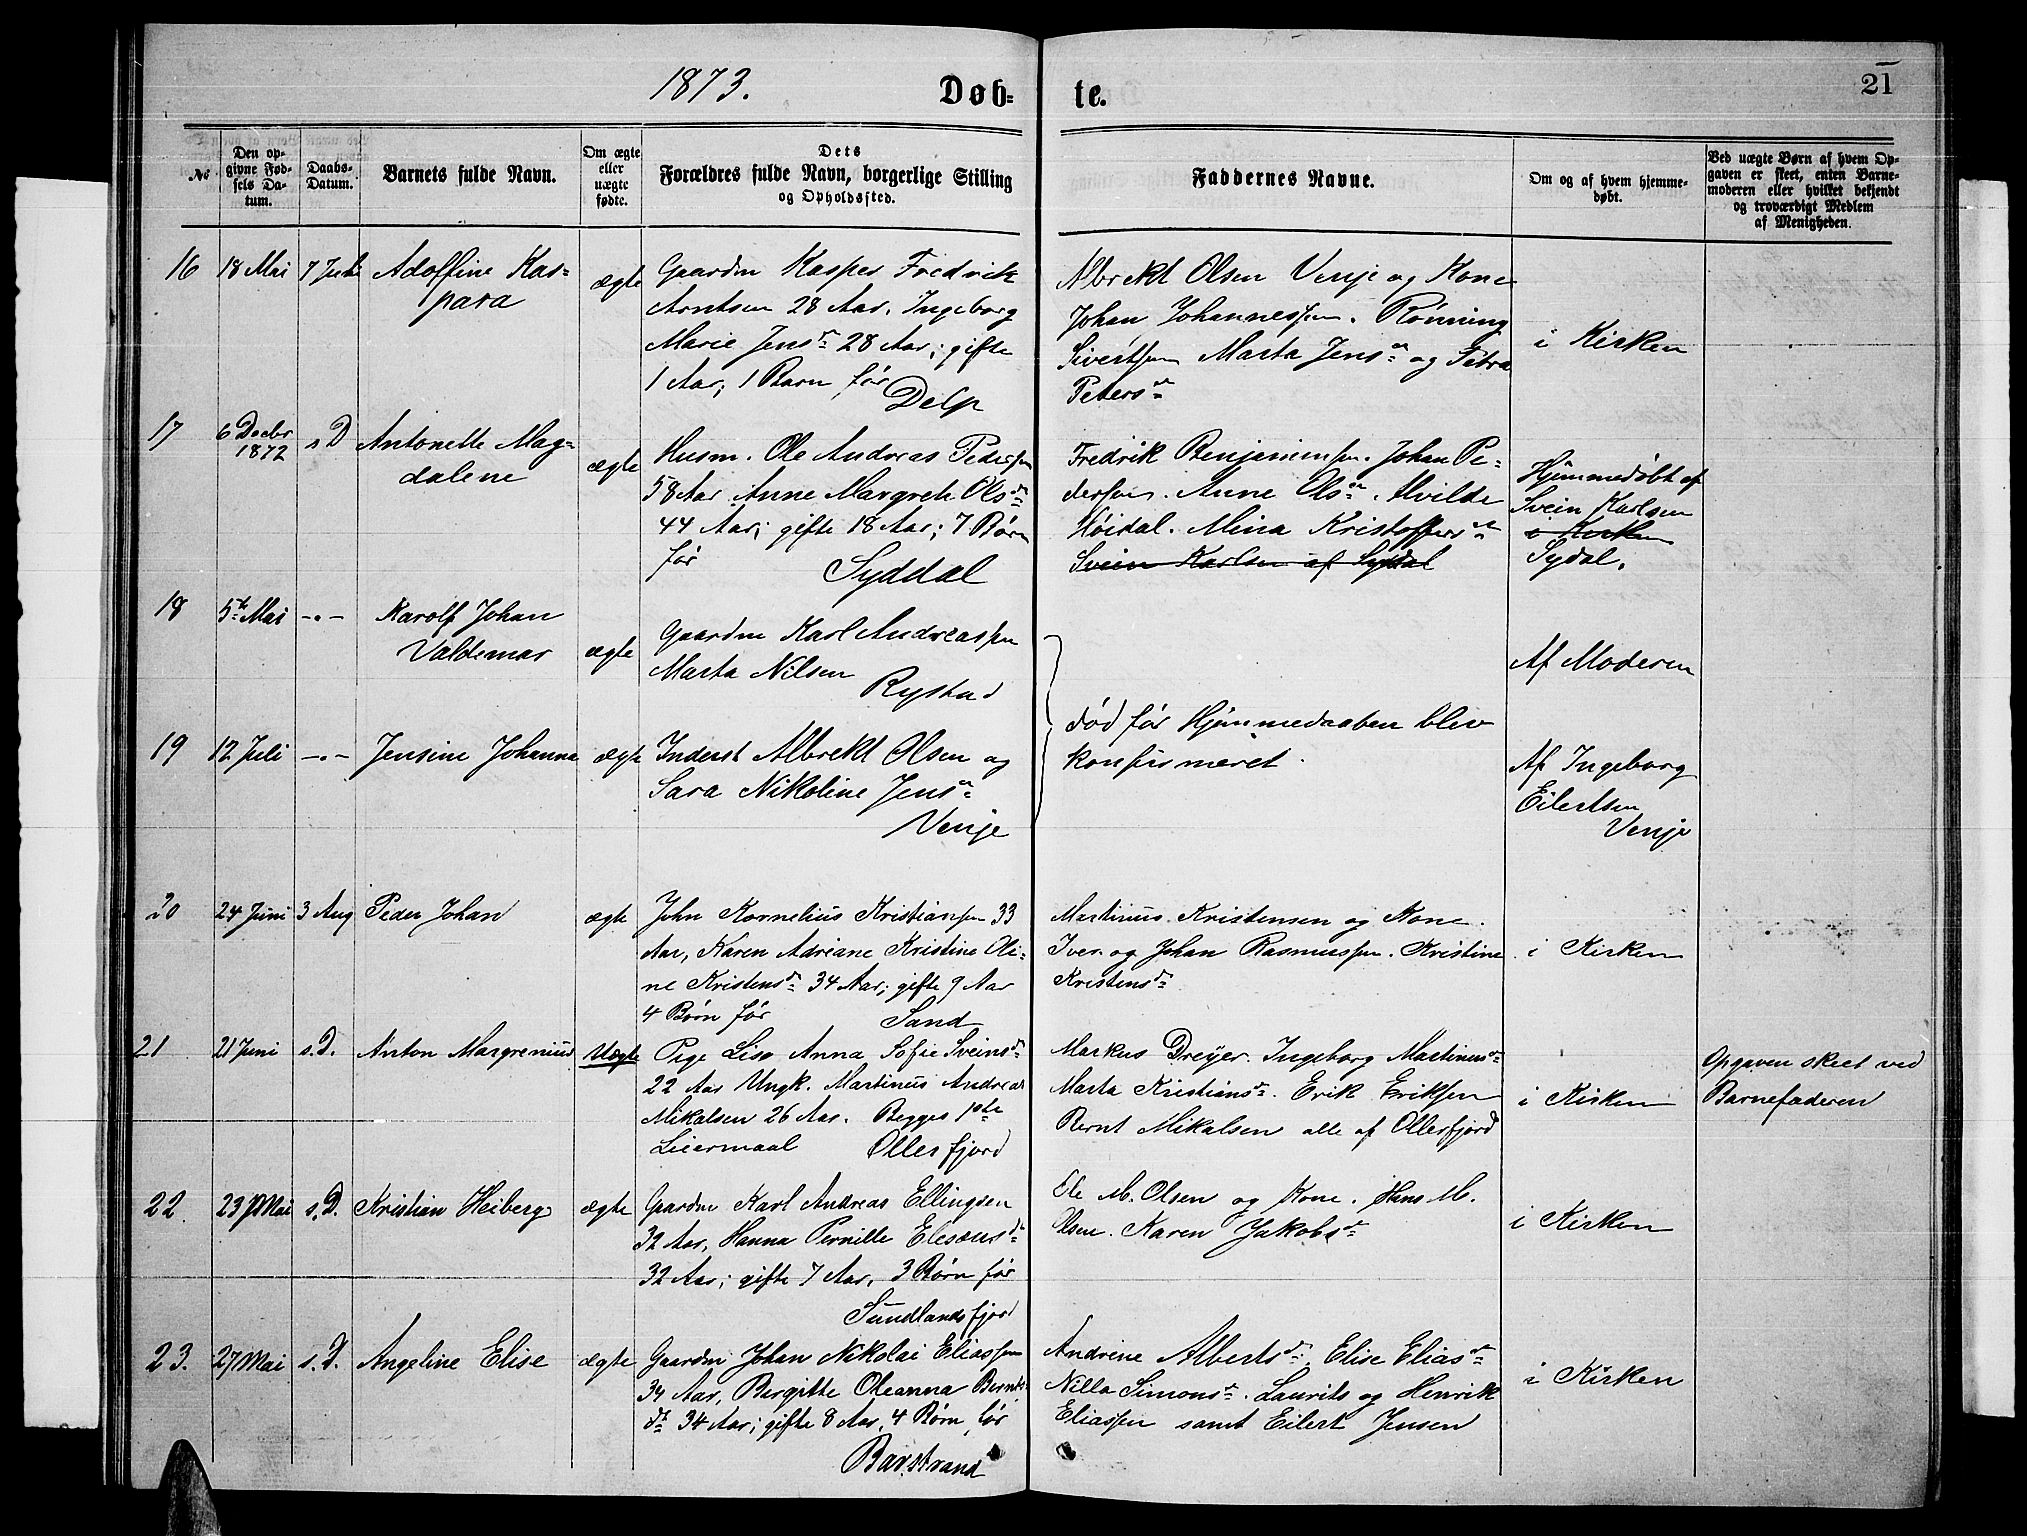 1873.
Døb= te.
21
№
Den op-
givne Fød-
sels Da-
tum.
Daabs-
Datum.
Barnets fulde Navn.
Om ægte
eller
uægte
fødte.
Dets
Forældres fulde Navn, borgerlige Stilling
og Opholdssted.
Faddernes Navne.
Om og af hvem hjemme-
døbt.
Ved uægte Børn af hvem Op-
gaven er skeet, enten Barne-
moderen eller hvilket bekjendt
og troværdigt Medlem
af Menigheden.
16 18 Mai 7 Juli Adolfine Kas=
para
ægte
Gaardm Kasper Fredrik
Arntsen 28 Aar, Ingeborg
Marie Jensdr 28 Aar; gifte
1 Aar; 1 Barn før
Delp
Albrekt Olsen Venje og Kone
Johan Johannessen. Rønning
Sivertsen Marta Jensdr og Petra
Petersdr
i Kirken
17 6 Decbr
1872
s D Antonette Mag=
dalene
ægte
Husm. Ole Andreas Pedersen
58 Aar Anne Margrete Olsdr
44 Aar; gifte 18 Aar; 7 Børn
før
Syddal
Fredrik Benjaminsen. Johan Pe-
dersen. Anne Olsdr. Alvilde
Høidal. Mina Kristoffersdr
Svein Karlsen af Syddal
Hjemmedøbt af
Svein Karlsen
i Kirken
Sydal.
18 5te Mai -„- Karolf Johan
Valdemar
ægte
Gaardm Karl Andreassen
Marta Nilsen
Rystad
Af Moderen
død før Hjemmedaaben blev
konfirmeret.
19 12 Juli -„- Jensine Johanna ægte
Inderst Albrekt Olsen og
Sara Nikoline Jensdr
Venje
Af Ingeborg
Eilertsen
Venje
20 24 Juni 3 Aug Peder Johan ægte
John Kornelius Kristiansen 33
Aar, Karen Adriane Kristine Oli-
ne Kristensdr 34 Aar; gifte 9 Aar
4 Børn før
Sand
Martinus Kristensen og Kone.
Iver og Johan Rasmussen. Kristine
Kristensdr
i Kirken
21 21 Juni s.D. Anton Margrenius Uægte
Pige Lise Anna Sofie Sveinsdr
22 Aar Ungk. Martinus Andreas
Mikalsen 26 Aar. Begges 1ste
Leiermaal Ollersfjord
Markus Dreyer. Ingeborg Martinusdr
Marta Kristiansdr. Erik Eriksen
Bernt Mikalsen alle af Ollersfjord
i Kirken
Opgaven skeet ved
Barnefaderen
22 23 Mai s.D. Kristian Heiberg ægte
Gaardm Karl Andreas Ellingsen
32 Aar, Hanna Pernille Eleseusdr
32 Aar; gifte 7 Aar, 3 Børn før
Sundlandsfjord
Ole M. Olsen og Kone. Hans M.
Olsen. Karen Jakobsdr
i Kirken
23. 27 Mai s.D. Angeline Elise ægte
Gaardm Johan Nikolai Eliassen
34 Aar, Bergitte Oleanna Bernts-
dr 34 Aar; gifte 8 Aar, 4 Børn før
Barstrand
Andrine Albertsdr. Elise Eliasdr
Nilla Simonsdr. Laurits og Henrik
Eliassen samt Eilert Jensen
i Kirken